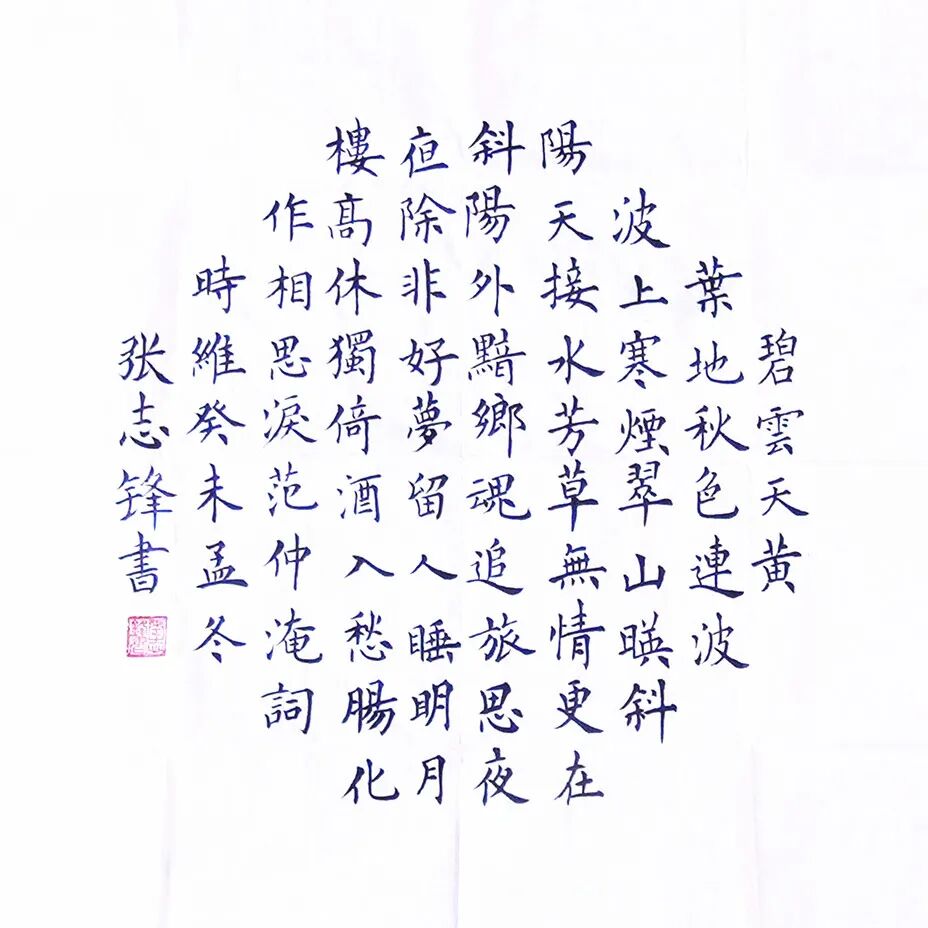 碧雲天黄
葉地秋色連波
波上寒煙翠山暎斜
陽天接水芳草無情更在
斜陽外黯鄉魂追旅思夜
亱除非好夢留人睡明月
樓髙休獨倚酒入愁腸化
作相思淚范仲淹詞
時維癸未孟冬
张志锋書